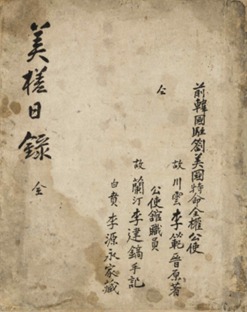 前韓國駐劄美國特命全權公使
故 川雲 李範晉原著
仝
公使館職員
故 蘭汀 李建鎬手記
白賁 李源永家藏
美槎日錄 全